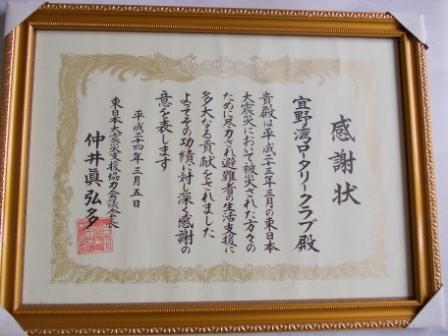 感謝状
宜野湾ロータリークラブ殿
貴殿は平成二十三年三月の東日本
大震災において被災された方々の
ために尽力され避難者の生活支援に
多大なる貢献をされました
よってその功績に対し深く感謝の
意を表します
平成二十四年三月五日
東日本大震災支援協力会議会長
仲井眞弘多